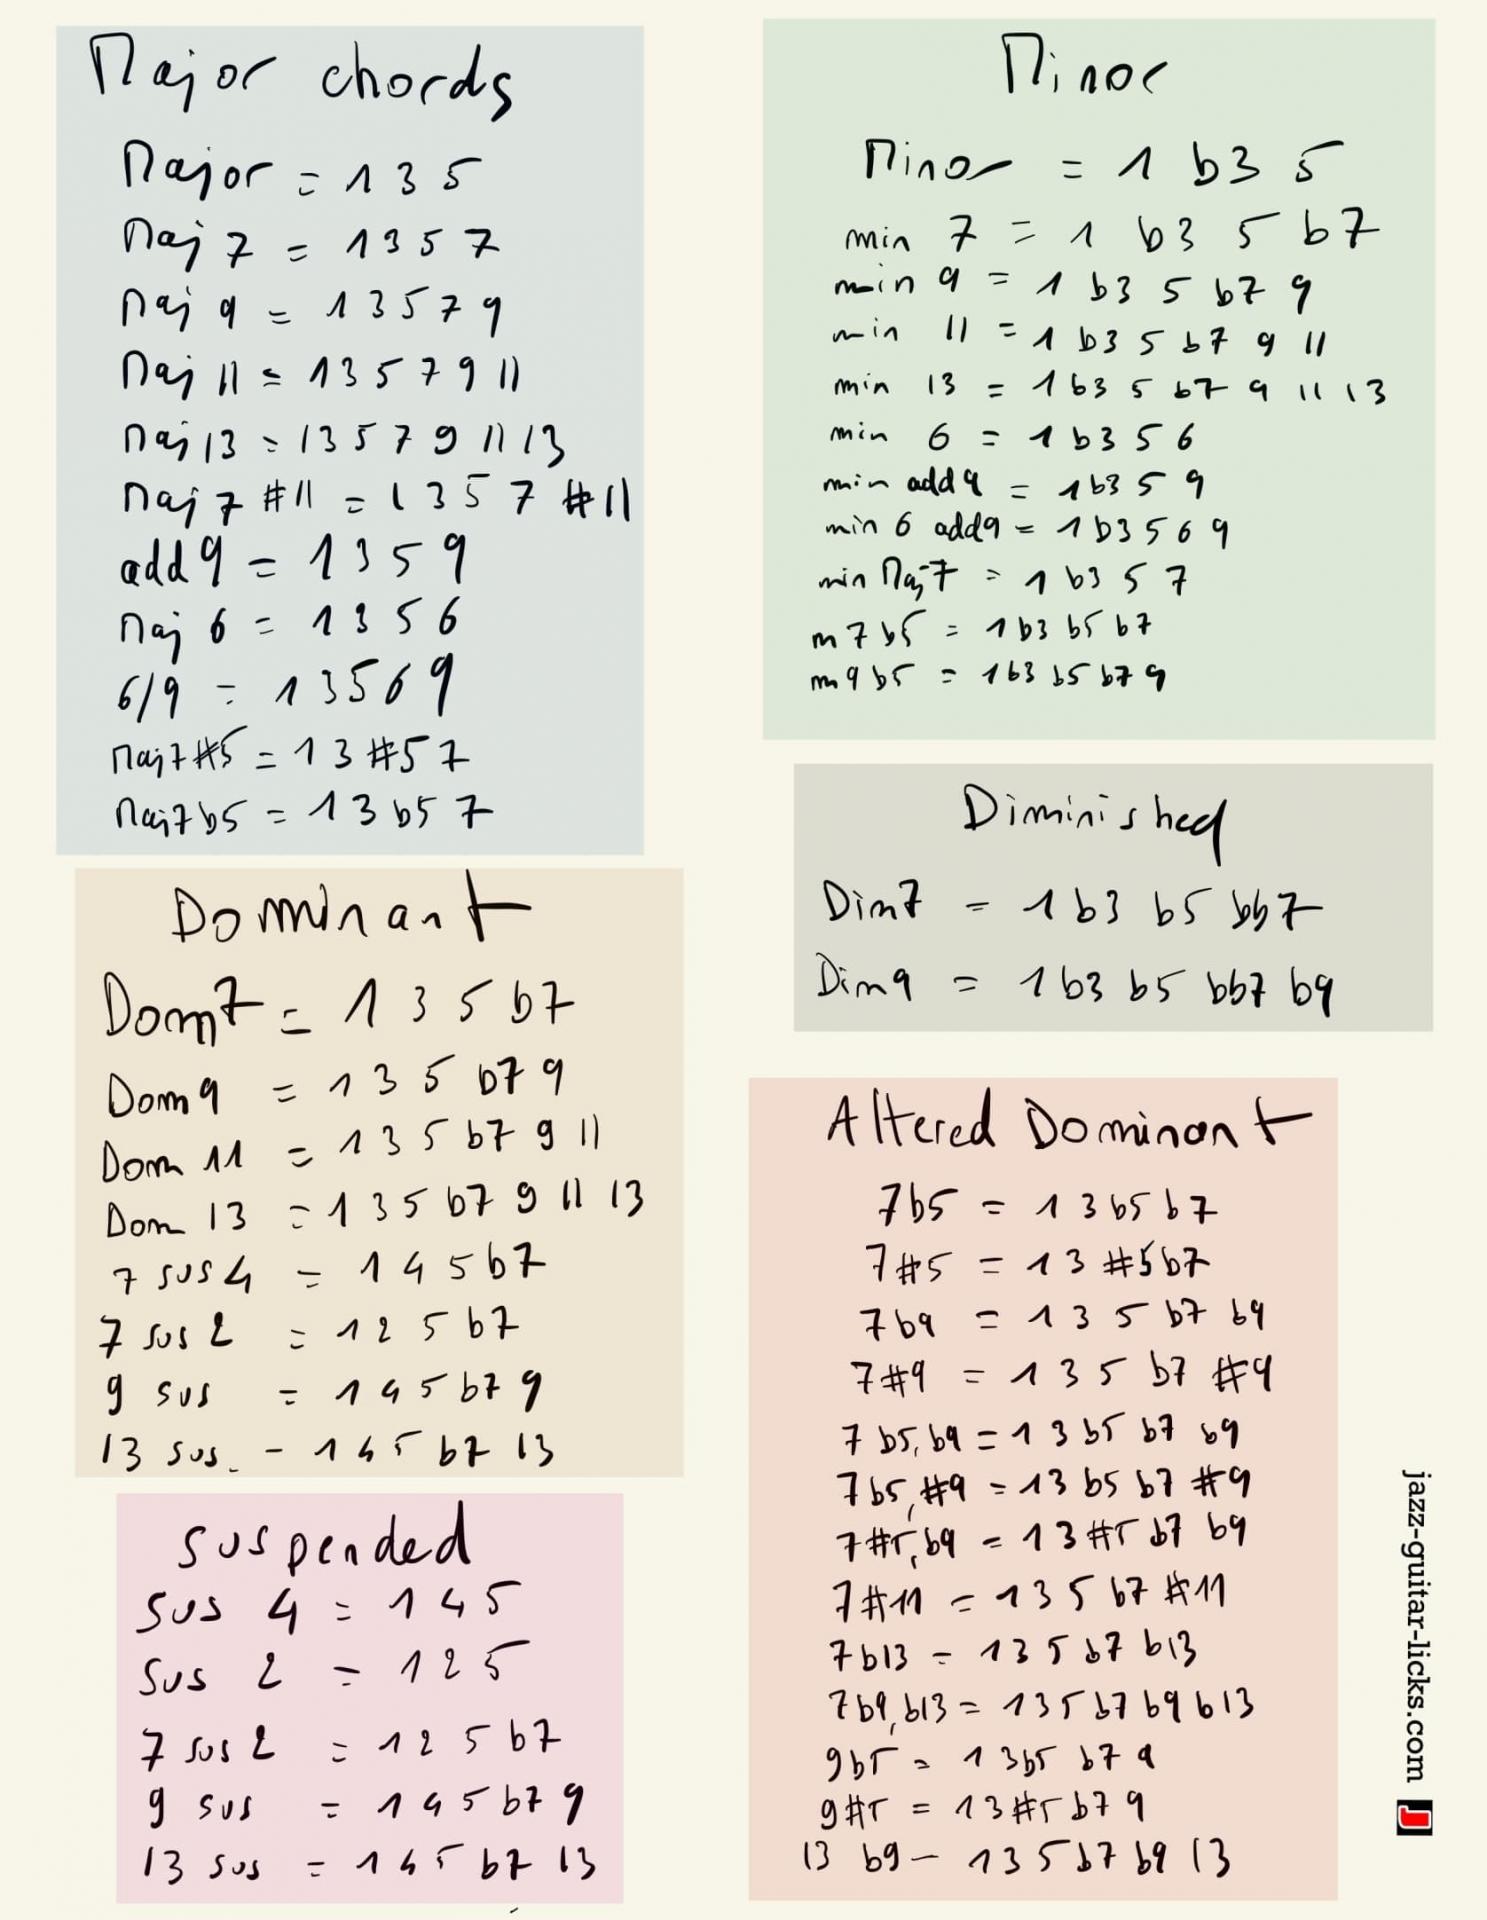 Major chords
Major = 1 3 5
Maj 7 = 1 3 5 7
Maj 9 = 1 3 5 7 9
Maj 11 = 1 3 5 7 9 11
Maj 13 = 1 3 5 7 9 11 13
Maj 7 #11 = 1 3 5 7 #11
add 9 = 1 3 5 9
Maj 6 = 1 3 5 6
6/9 = 1 3 5 6 9
Maj7#5 = 1 3 #5 7
Maj7b5 = 1 3 b5 7
Dominant
Dom7 = 1 3 5 b7
Dom 9 = 1 3 5 b7 9
Dom 11 = 1 3 5 b7 9 11
Dom 13 = 1 3 5 b7 9 11 13
7 sus 4 = 1 4 5 b7
7 sus 2 = 1 2 5 b7
9 sus = 1 4 5 b7 9
13 sus. - 1 4 5 b7 13
Suspended
Sus 4 = 1 4 5
Sus 2 = 1 2 5
7 sus 2 = 1 2 5 b7
9 sus = 1 4 5 b7 9
13 sus = 1 4 5 b7 13
Minor
Minor = 1 b3 5
min 7 = 1 b3 5 b7
min 9 = 1 b3 5 b7 9
min 11 = 1 b3 5 b7 9 11
min 13 = 1 b3 5 b7 9 11 13
min 6 = 1 b3 5 6
min add 9 = 1 b3 5 9
min 6 add9 = 1 b3 5 6 9
min Maj7 = 1 b3 5 7
m 7 b5 = 1 b3 b5 b7
m 9 b5 = 1 b3 b5 b7 9
Diminished
Dim7 = 1 b3 b5 bb7
Dim9 = 1 b3 b5 bb7 b9
Altered Dominant
7b5 = 1 3 b5 b7
7#5 = 1 3 #5 b7
7b9 = 1 3 5 b7 b9
7#9 = 1 3 5 b7 #9
7 b5, b9 = 1 3 b5 b7 b9
7 b5, #9 = 1 3 b5 b7 #9
7#5, b9 = 1 3 #5 b7 b9
7#11 = 1 3 5 b7 #11
7 b13 = 1 3 5 b7 b13
7b9, b13 = 1 3 5 b7 b9 b13
9b5 = 1 3 b5 b7 9
9#5 = 1 3 #5 b7 9
13 b9 - 1 3 5 b7 b9 13
jazz-guitar-licks.com